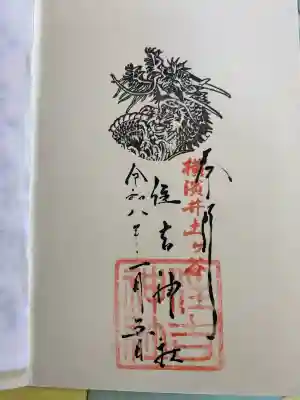 奉拝
横濱井土ヶ谷
住吉神社
令和八年一月五日